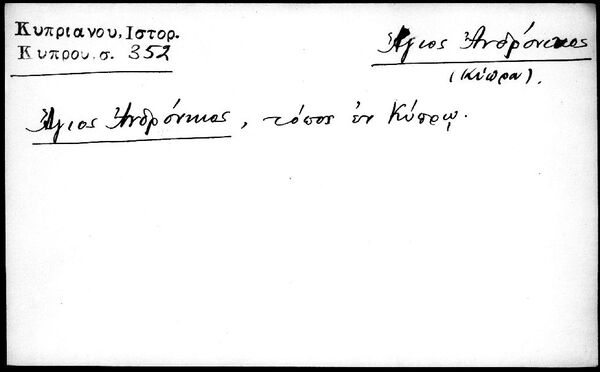 Κυπριανου, Ιστορ.
Κυπρου. σ. 352
Ἅγιος Ἀνδρόνικος
(Κύπρου).
Ἅγιος Ἀνδρόνικος, τόπος ἐν Κύπρῳ.